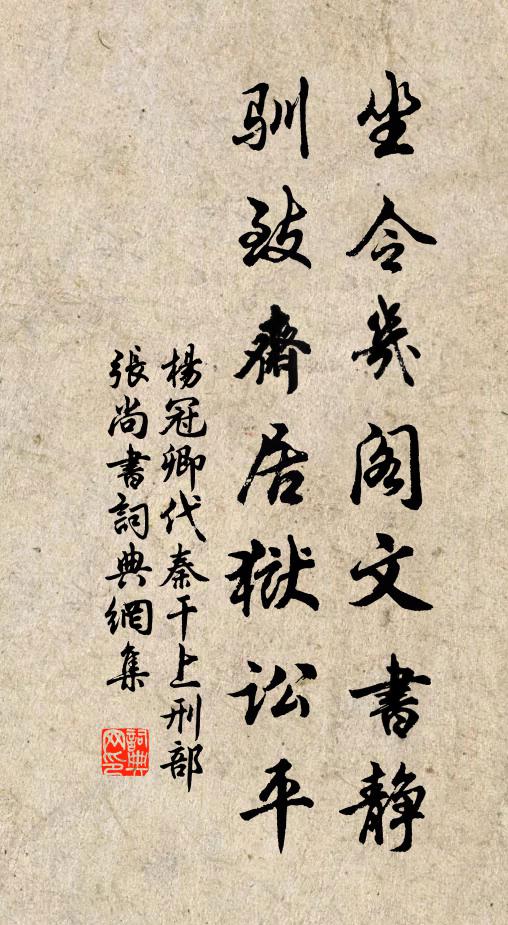 坐令几阁文书静
驯致斋居狱讼平
杨冠卿代秦干上刑部
张尚书词典网集
词典网印